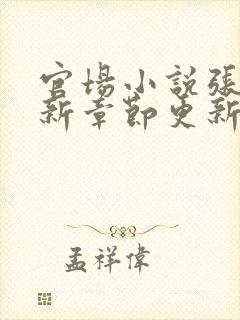 官場小說張
新章節更新
孟祥偉